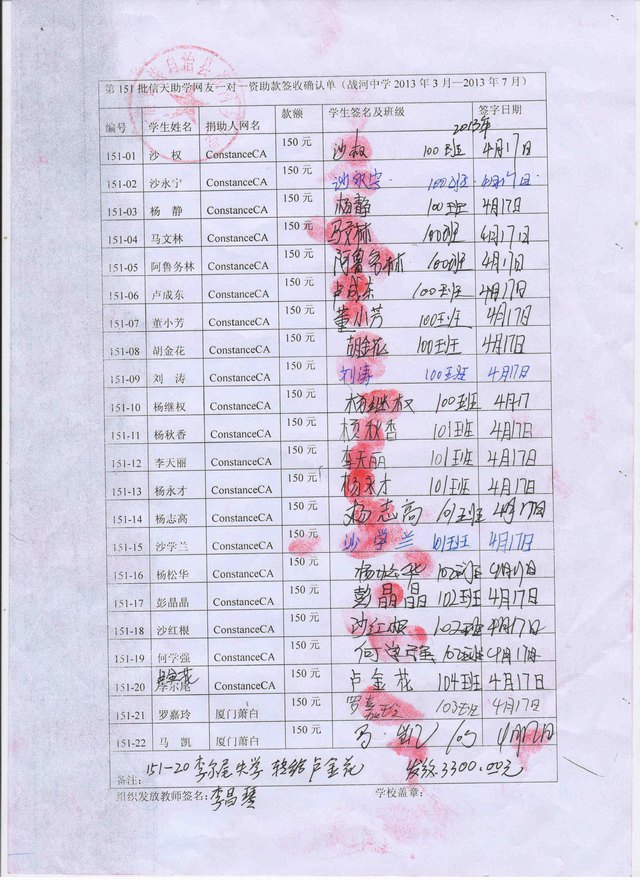 自治县
第 151 批信天助学网友一对一资助款签收确认单（战河中学 2013 年 3 月—2013 年 7 月）
编号 学生姓名 捐助人网名 款额 学生签名及班级 签字日期
2013年
151-01 沙 权 ConstanceCA 150 元 沙权 100班 4月17日
151-02 沙永宁 ConstanceCA 150 元 沙永宁 100班 4月17日
151-03 杨 静 ConstanceCA 150 元 杨静 100班 4月17日
151-04 马文林 ConstanceCA 150 元 马文林 100班 4月17日
151-05 阿鲁务林 ConstanceCA 150 元 阿鲁务林 100班 4月17日
151-06 卢成东 ConstanceCA 150 元 卢成东 100班 4月17日
151-07 董小芳 ConstanceCA 150 元 董小芳 100班 4月17日
151-08 胡金花 ConstanceCA 150 元 胡金花 100班 4月17日
151-09 刘 涛 ConstanceCA 150 元 刘涛 100班 4月17日
151-10 杨继权 ConstanceCA 150 元 杨继权 100班 4月17
151-11 杨秋香 ConstanceCA 150 元 杨秋香 101班 4月17日
151-12 李天丽 ConstanceCA 150 元 李天丽 101班 4月17日
151-13 杨永才 ConstanceCA 150 元 杨永才 101班 4月17日
151-14 杨志高 ConstanceCA 150 元 杨志高 101班 4月17日
151-15 沙学兰 ConstanceCA 150 元 沙学兰 101班 4月17日
151-16 杨松华 ConstanceCA 150 元 杨松华 102班 4月17日
151-17 彭晶晶 ConstanceCA 150 元 彭晶晶 102班 4月17日
151-18 沙红根 ConstanceCA 150 元 沙红根 102班 4月17日
151-19 何学强 ConstanceCA 150 元 何学强 102班 4月17日
卢金花
151-20 李尔尾 ConstanceCA 150 元 卢金花 104班 4月17日
151-21 罗嘉玲 厦门萧白 150 元 罗嘉玲 103班 4月17日
151-22 马 凯 厦门萧白 150 元 马凯 4月17日
备注： 151-20李尔尾失学 转给卢金花 发放3300.00元
组织发放教师签名：李昌琴 学校盖章：